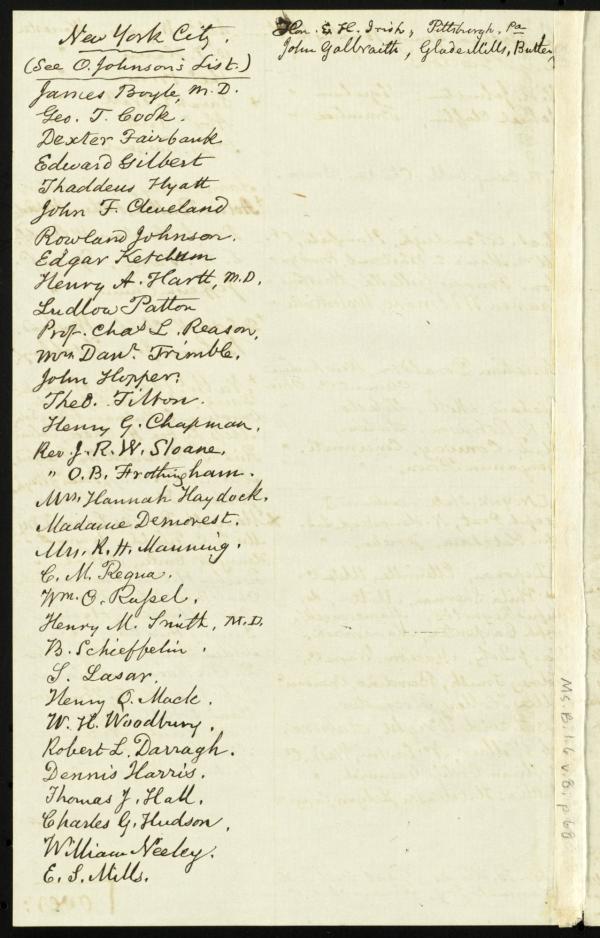 New York City.
(See O. Johnson's List.)
James Boyle, M.D.
Geo. T. Cook.
Dexter Fairbank
Edward Gilbert
Thaddeus Hyatt
John F. Cleveland
Rowland Johnson.
Edgar Ketchum
Henry A. Hartt, M.D.
Ludlow Patton
Prof. Chas L. Reason,
Mrs. Danl. Trimble.
John Hopper.
Theo. Tilton.
Henry G. Chapman.
Rev. J. R. W. Sloane.
" O. B. Frothingham.
Mrs. Hannah Haydock.
Madame Demorest.
Mrs. R. H. Manning.
C. M. Requa.
Wm. O.
Henry M. Smith, M.D.
B. Schieffelin.
S. Lasar.
Henry O. Mack.
W. H. Woodbury.
Robert L. Darragh.
Dennis Harris.
Thomas J. Hall.
Charles G. Hudson.
William Neeley.
E. S. Mills.
Hon. E. H. Irish, Pittsburgh, Pa
John Galbraith, Glade Mills, Butler,
Ms. B. 1.6 v. 8, p 68